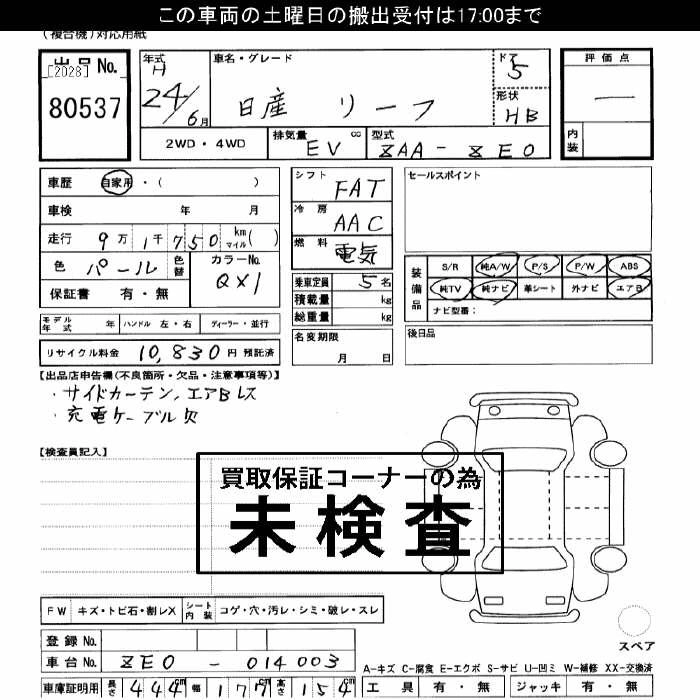 この車両の土曜日の搬出受付は17:00まで
(複合機)対応用紙
出品 No. [2028] 80537
年式 H 24/6月
車名・グレード 日産 リーフ
ドア 5
形状 HB
評価点 —
内装
2WD・4WD
排気量 EV cc
型式 ZAA-ZE0
車歴 自家用・( )
車検 年 月
走行 9万1千750 km マイル( )
色 パール 色替 カラーNo. QX1
保証書 有・無
シフト FAT
冷房 AAC
燃料 電気
乗車定員 5名
積載量 kg
総重量 kg
セールスポイント
装備品
S/R 純A/W P/S P/W ABS
純TV 純ナビ 革シート 外ナビ エアB
ナビ型番:
モデル年式 年 ハンドル 左・右 ディーラー・並行
名変期限 月 日
後日品
リサイクル料金 10,830円 預託済
【出品店申告欄(不良箇所・欠品・注意事項等)】
・サイドカーテン,エアBレス
・充電ケーブル欠
【検査員記入】
買取保証コーナーの為
未検査
FW キズ・トビ石・割レX シート内装 コゲ・穴・汚レ・シミ・破レ・スレ
登録 No.
車台 No. ZE0-014003
スペア
A-キズ C-腐食 E-エクボ S-サビ U-凹ミ W-補修 XX-交換済
車庫証明用 長さ 444cm 幅 177cm 高さ 154cm
工具 有・無 ジャッキ 有・無